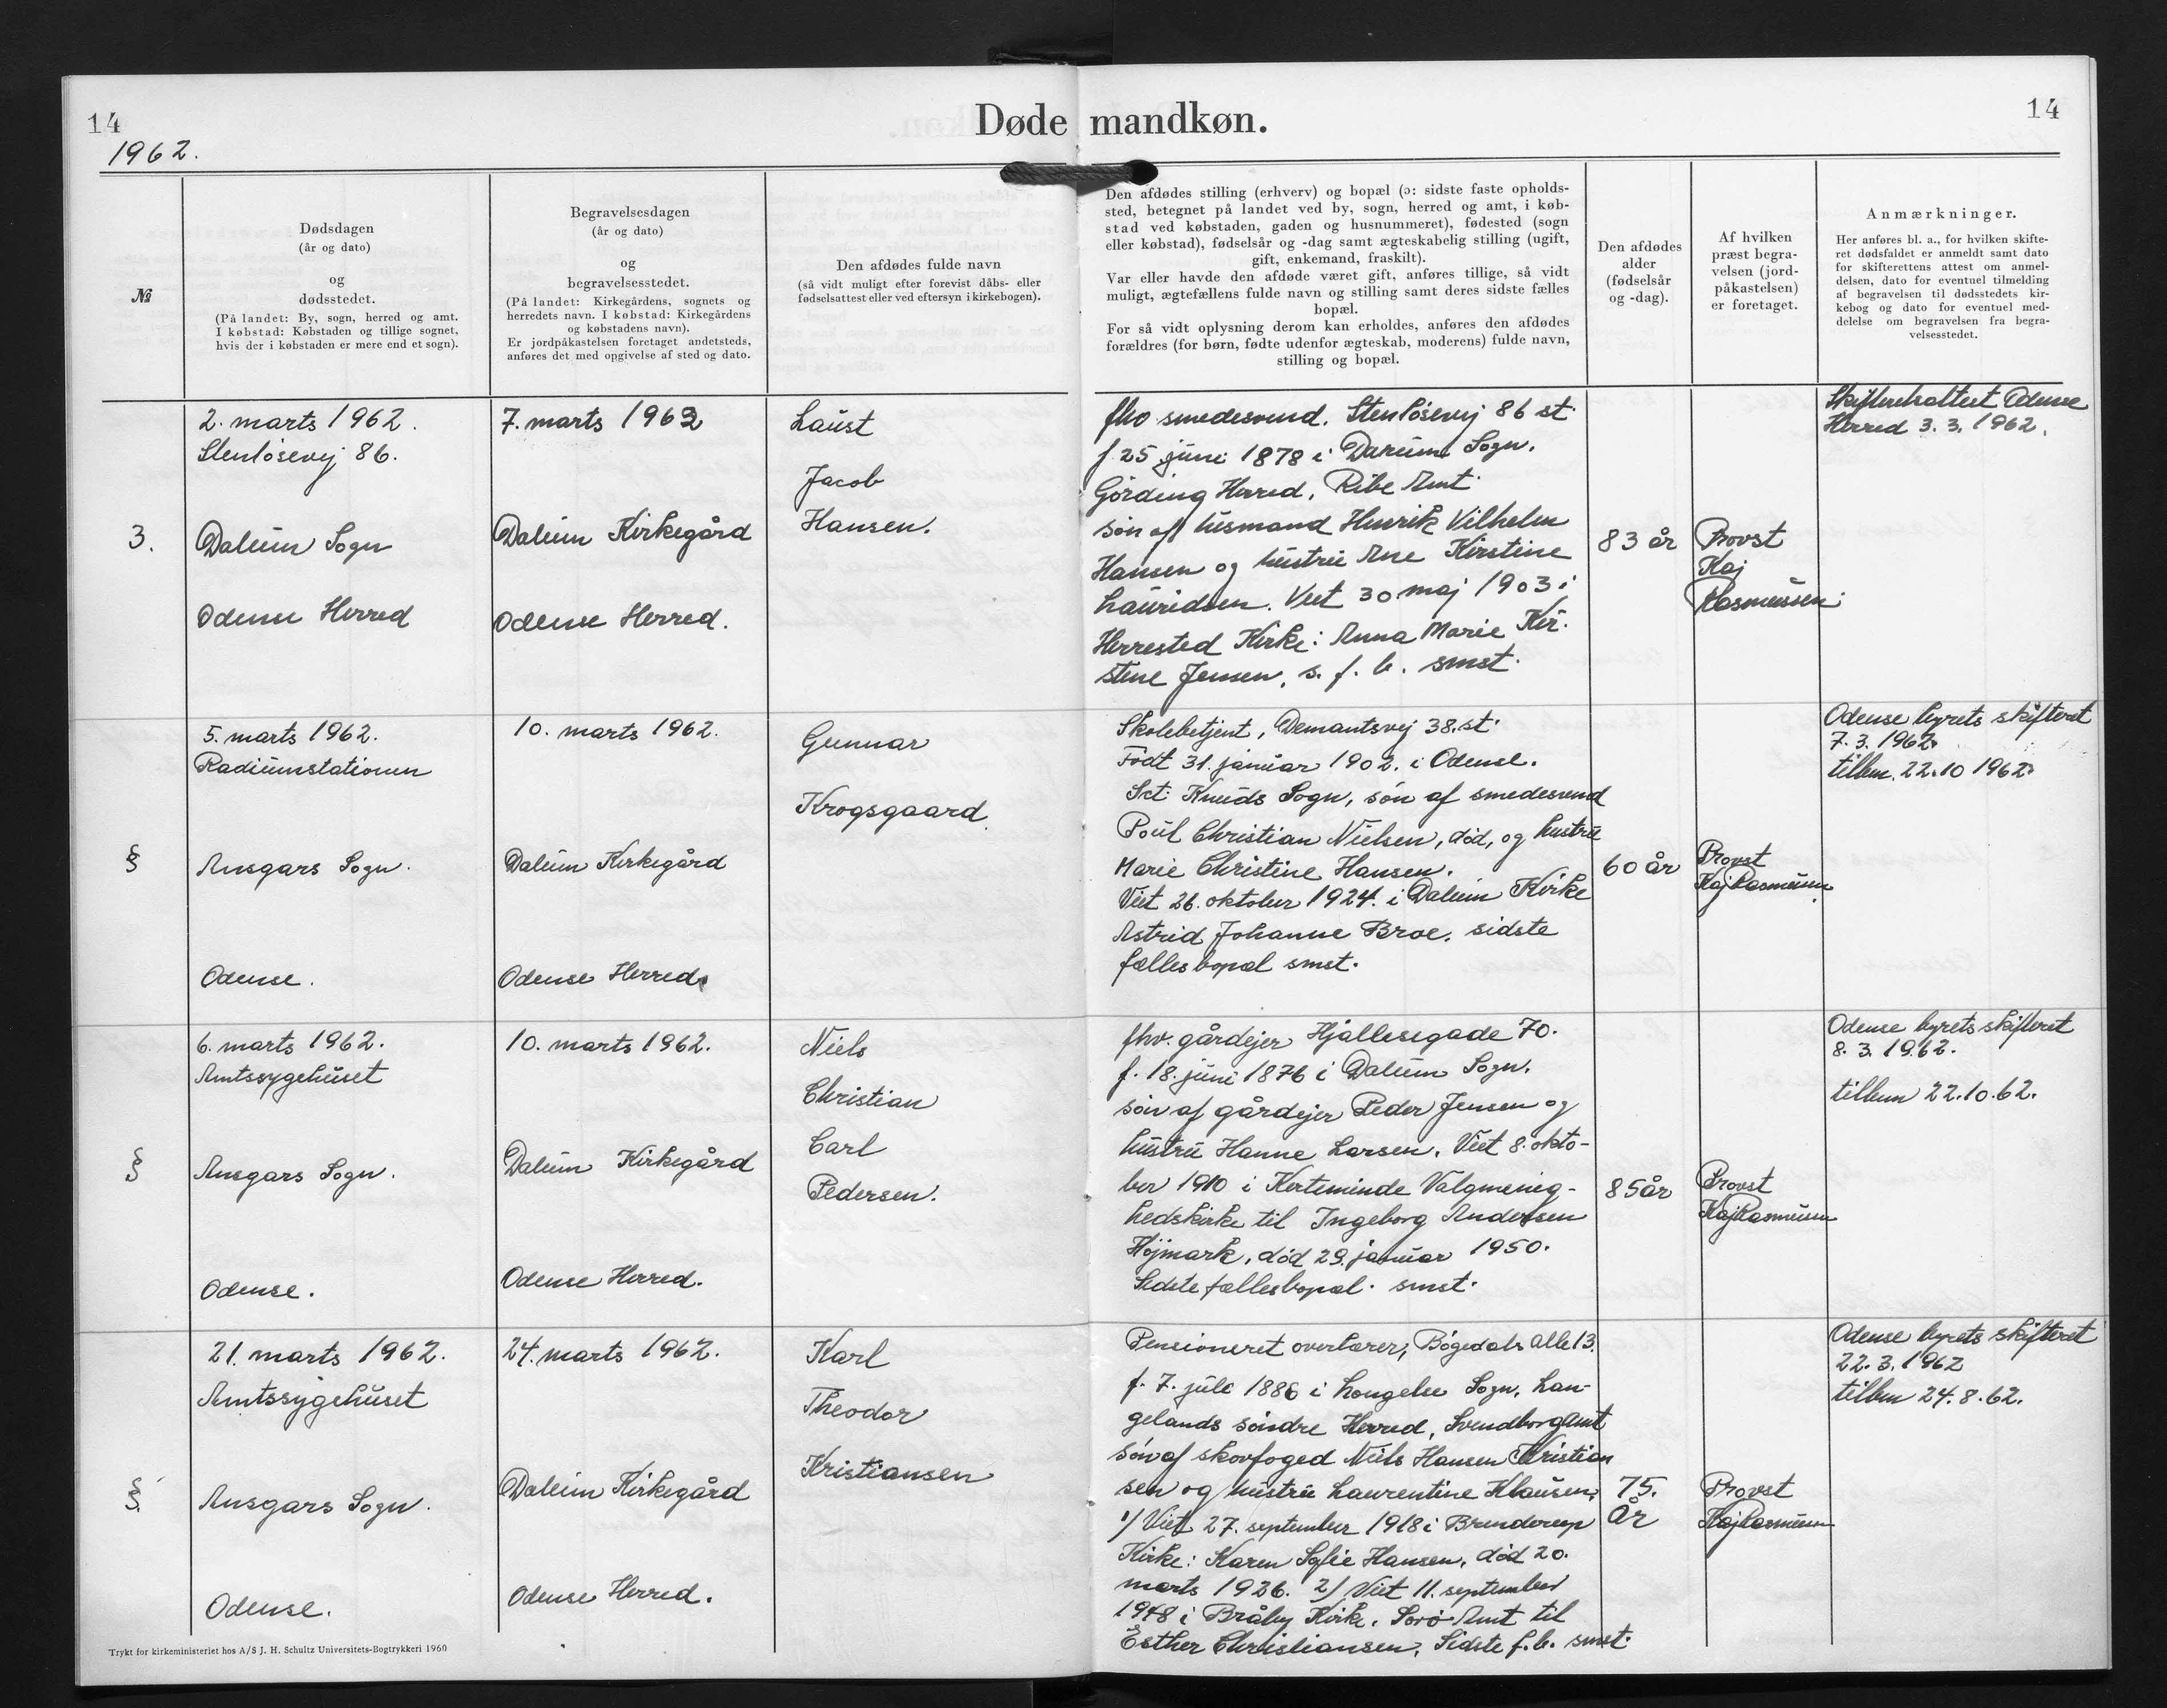 14
1962.
Døde mandkøn.
14
№
Dødsdagen
(år og dato)
og
dødsstedet.
(På landet: By, sogn, herred og amt.
I købstad: Købstaden og tillige sognet,
hvis der i købstaden er mere end et sogn).
Begravelsesdagen
(år og dato)
og
begravelsesstedet.
(På landet: Kirkegårdens, sognets og
herredets navn. I købstad: Kirkegårdens
og købstadens navn).
Er jordpåkastelsen foretaget andetsteds,
anføres det med opgivelse af sted og dato.
Den afdødes fulde navn
(så vidt muligt efter forevist dåbs- eller
fødselsattest eller ved eftersyn i kirkebogen).
Den afdødes stilling (erhverv) og bopæl (ɔ: sidste faste opholds-
sted, betegnet på landet ved by, sogn, herred og amt, i køb-
stad ved købstaden, gaden og husnummeret), fødested (sogn
eller købstad), fødselsår og -dag samt ægteskabelig stilling (ugift,
gift, enkemand, fraskilt).
Var eller havde den afdøde været gift, anføres tillige, så vidt
muligt, ægtefællens fulde navn og stilling samt deres sidste fælles
bopæl.
For så vidt oplysning derom kan erholdes, anføres den afdødes
forældres (for børn, fødte udenfor ægteskab, moderens) fulde navn,
stilling og bopæl.
Den afdødes
alder
(fødselsår
og -dag).
Af hvilken
præst begra-
velsen (jord-
påkastelsen)
er foretaget.
Anmærkninger.
Her anføres bl. a., for hvilken skifte-
ret dødsfaldet er anmeldt samt dato
for skifterettens attest om anmel-
delsen, dato for eventuel tilmelding
af begravelsen til dødsstedets kir-
kebog og dato for eventuel med-
delelse om begravelsen fra begra-
velsesstedet.
3.
2. marts 1962.
Stenløsevej 86.
Dalum Sogn
Odense Herred
7. marts 1962
Dalum Kirkegård
Odense Herred.
Laust
Jacob
Hansen.
fhv smedesvend. Stenløsevej 86 st.
f 25 juni 1878 i Darum Sogn.
Görding Herred, Ribe Amt.
søn af husmand Henrik Vilhelm
Hansen og hustru Ane Kirstine
Lauridsen. Viet 30 maj 1903 i
Herrested Kirke: Anna Marie Kir-
stine Jensen, s. f. b. smst.
83 år
Provst
Kaj
Rasmussen.
Odense
Herred 3. 3. 1962.
§
5. marts 1962.
Radiumstationen
Ansgars Sogn.
Odense.
10. marts 1962.
Dalum Kirkegård
Odense Herred.
Gunnar
Krogsgaard.
Skolebetjent, Demantsvej 38.st.
Født 31. januar 1902. i Odense.
Sct. Knuds Sogn, søn af smedesvend
Poul Christian Nielsen, død, og hustru
Marie Christine Hansen.
Viet 26. oktober 1924. i Dalum Kirke
Astrid Johanne Broe. sidste
fællesbopæl smst.
60 år
Provst
Kaj Rasmussen.
Odense byrets skifteret
7. 3. 1962.
tillem. 22.10 1962.
§
6. marts 1962.
Amtssygehuset
Ansgars Sogn.
Odense.
10. marts 1962.
Dalum Kirkegård
Odense Herred.
Niels
Christian
Carl
Pedersen.
fhv. gårdejer Hjallesegade 70.
f. 18. juni 1876 i Dalum Sogn.
søn af gårdejer Peder Jensen og
hustru Hanne Larsen. Viet 8. okto-
ber 1910 i Kerteminde Valgmenig-
hedskirke til Ingeborg Andersen
Højmark, død 29. januar 1950.
Sidste fællesbopæl. smst.
85 år
Provst
Kaj Rasmussen
Odense byrets skifteret
8. 3. 1962.
tillem 22.10.62.
§
21. marts 1962.
Amtssygehuset
Ansgars Sogn.
Odense.
24. marts 1962.
Dalum Kirkegård
Odense Herred.
Karl
Theodor
Kristiansen
Pensioneret overlærer, Bøgedals Alle 13.
f. 7. juli 1886 i Longelse Sogn, Lan-
gelands søndre Herred, Svendborg Amt
søn af skovfoged Niels Hansen Kristian
sen og hustru Laurentine Klausen.
1/ Viet 27. september 1918 i Brenderup
Kirke: Karen Sofie Hansen, død 20.
marts 1926. 2/ Viet 11. september
1948 i Bråby Kirke. Sorø Amt til
Esther Christiansen, Sidste f. b. smst.
75.
År
Provst
Kaj Rasmussen
Odense byrets skifteret
22. 3. 1962
tillem 24. 8. 62.
Trykt for kirkeministeriet hos A/S J. H. Schultz Universitets-Bogtrykkeri 1960